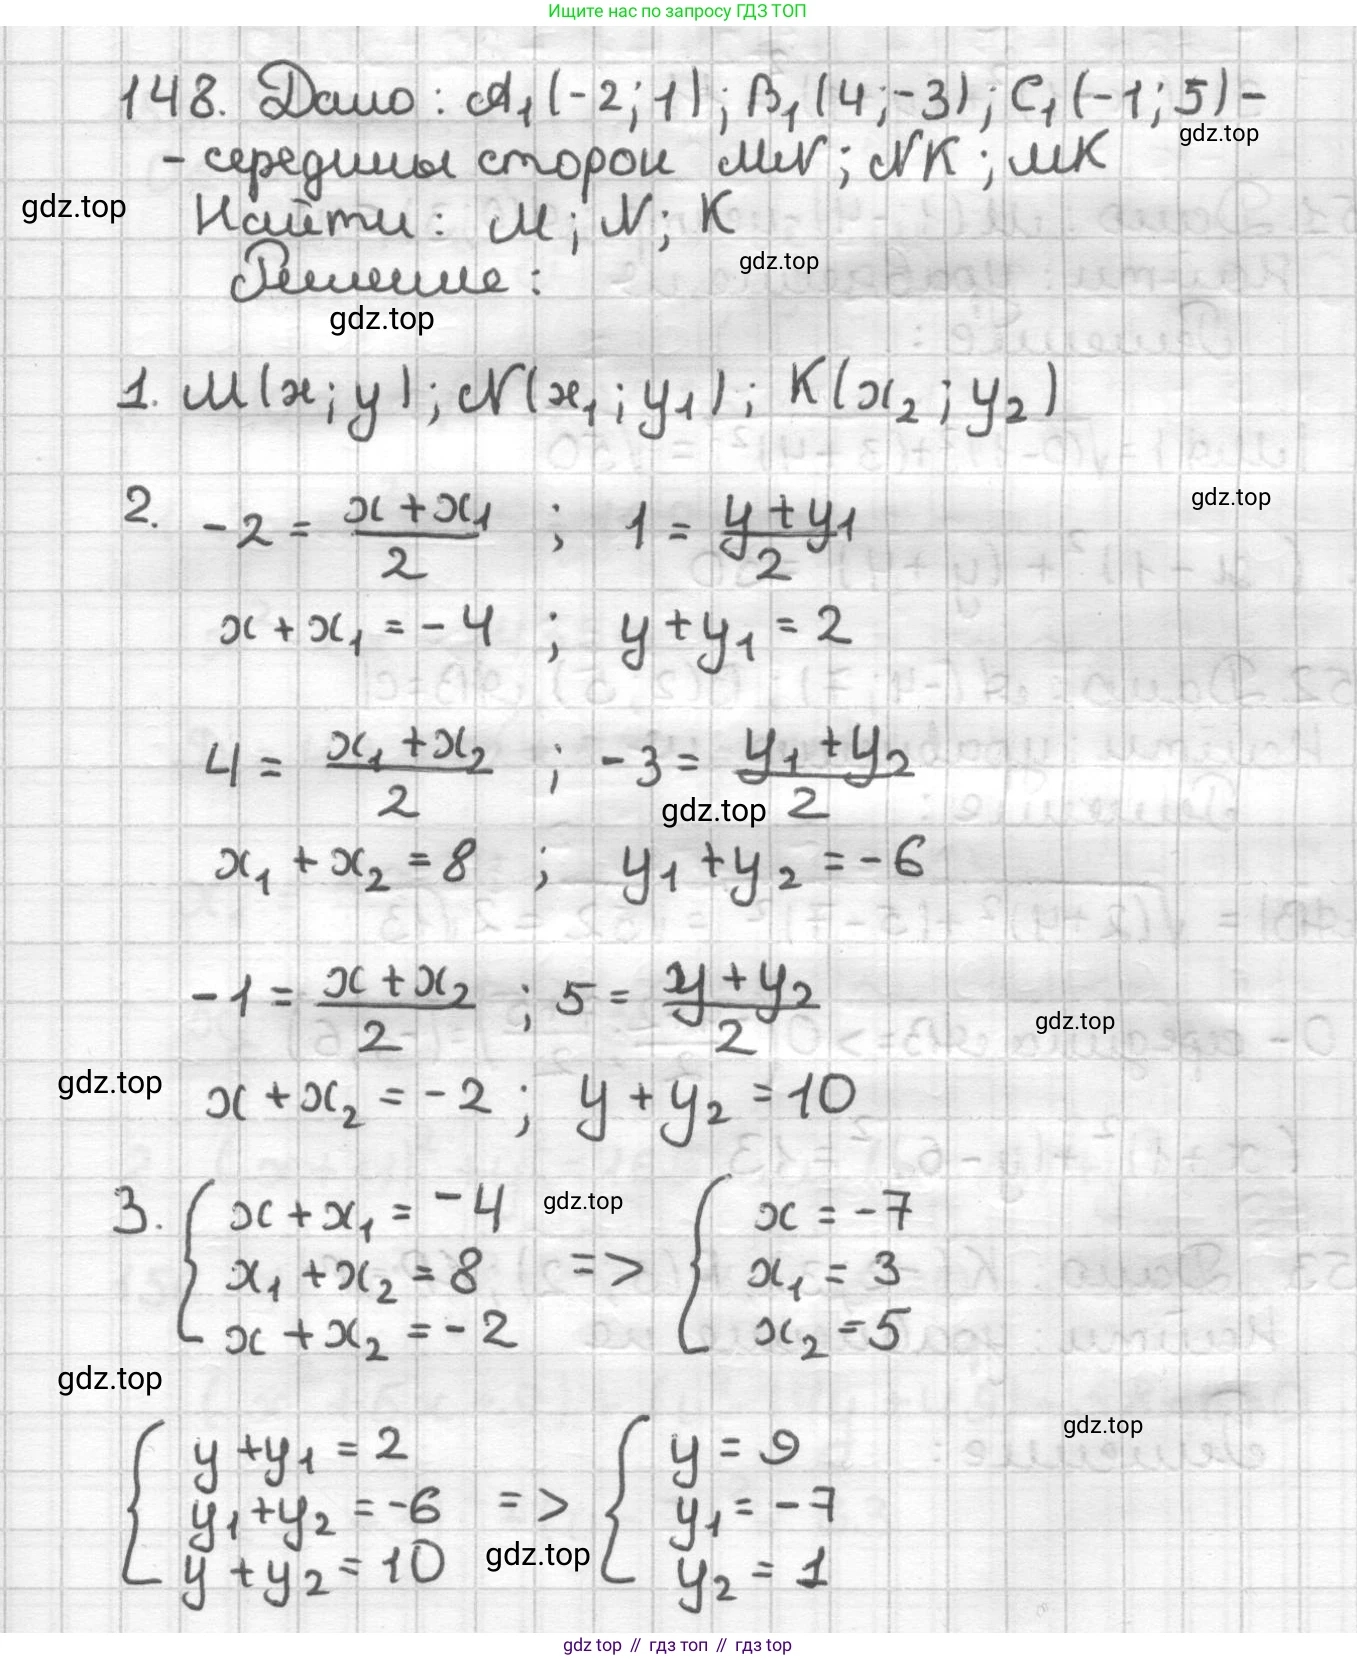 Ищите нас по запросу ГДЗ ТОП
148. Дано: A₁(-2;1); B₁(4;-3); C₁(-1;5)-
gdz.top
-середины сторон MN; NK; MK
gdz.top
Найти: M; N; K
gdz.top
Решение:
gdz.top
1. M(x;y); N(x₁;y₁); K(x₂;y₂)
gdz.top
2. -2 = (x+x₁)/2 ; 1 = (y+y₁)/2
x+x₁ = -4 ; y+y₁ = 2
4 = (x₁+x₂)/2 ; -3 = (y₁+y₂)/2
gdz.top
x₁+x₂ = 8 ; y₁+y₂ = -6
-1 = (x+x₂)/2 ; 5 = (y+y₂)/2
gdz.top
gdz.top
x+x₂ = -2; y+y₂ = 10
3. { x+x₁ = -4 { x = -7
gdz.top
x₁+x₂ = 8 => x₁ = 3
x+x₂ = -2 x₂ = 5
gdz.top
gdz.top
{ y+y₁ = 2 { y = 9
y₁+y₂ = -6 => y₁ = -7
gdz.top
y+y₂ = 10 y₂ = 1
gdz top // гдз топ // гдз top